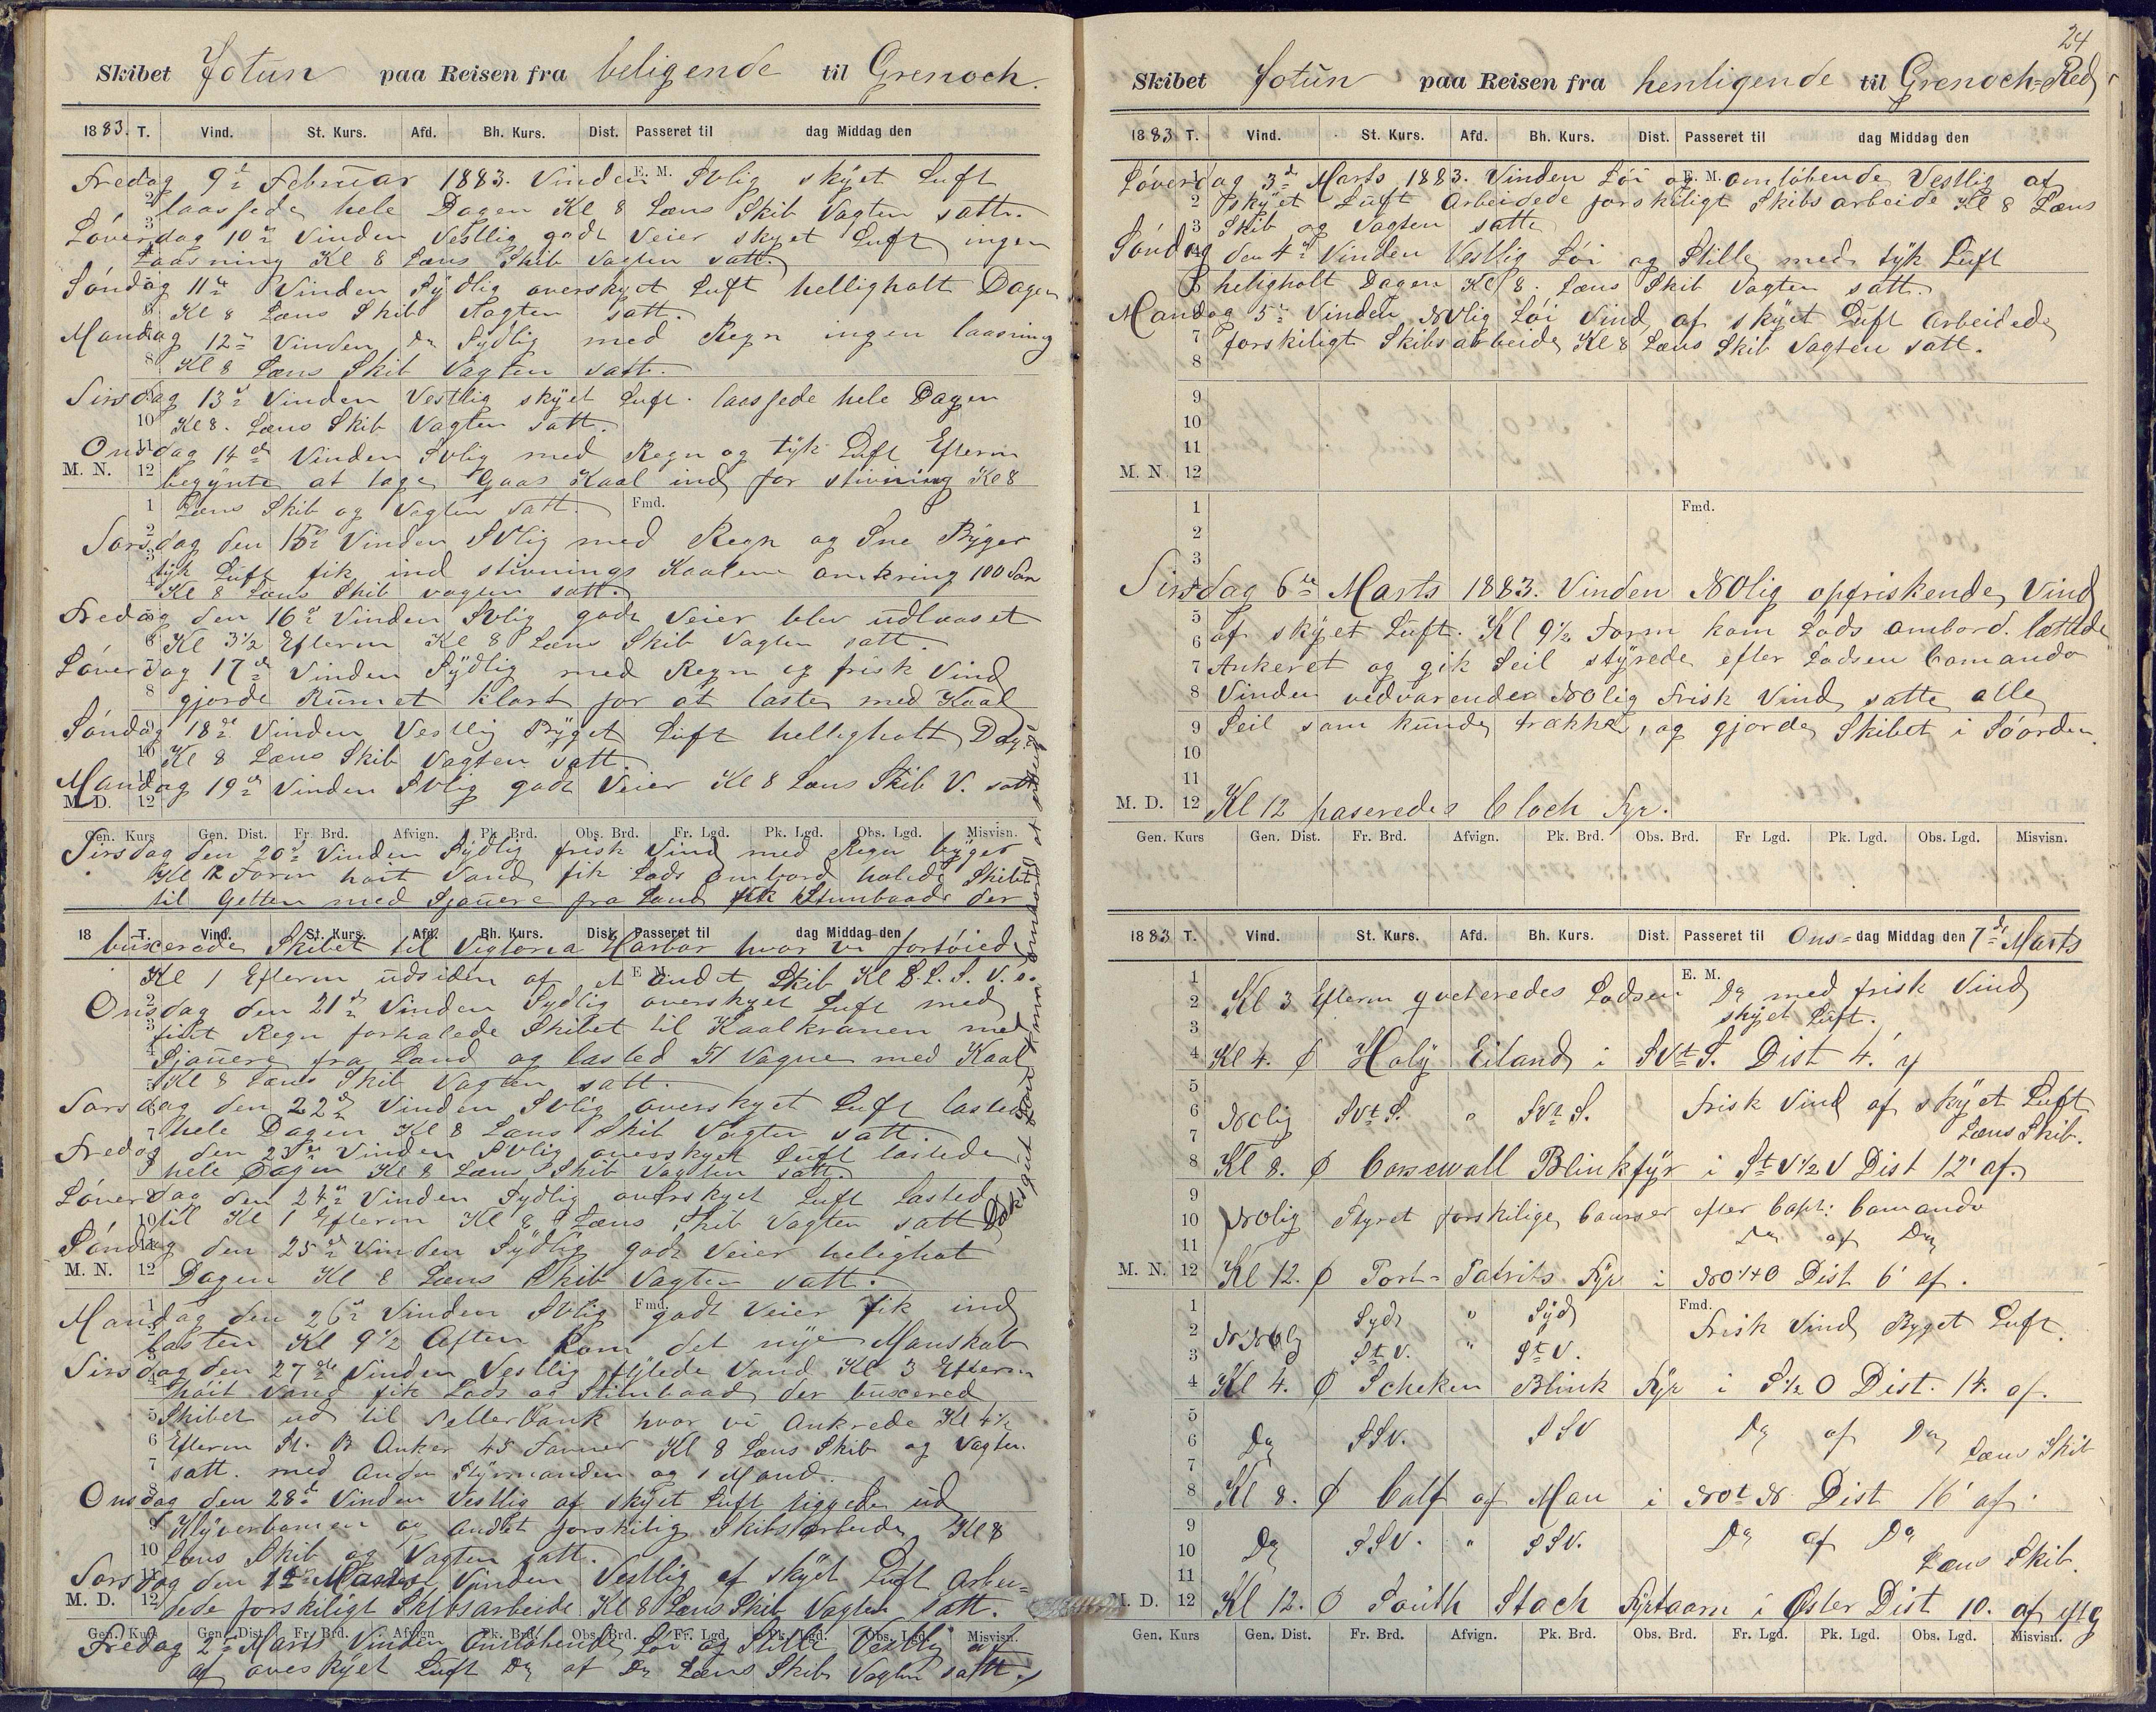 Skibet Jotun paa Reisen fra beligende til Grenoch.
1883. T. Vind. St. Kurs. Afd. Bh. Kurs. Dist. Passeret til dag Middag den
Fredag 9de Februar 1883. Vinden SVlig skÿet Luft
laassede hele Dagen Kl 8 Læns Skib Vagten satt.
Løverdag 10de Vinden Vestlig godt Veier skyet Luft ingen
Laasning Kl 8 Læns Skib Vagten satt.
Søndag 11te Vinden Sÿdlig overskyet Luft helligholt Dagen
Kl 8 Læns Skib Vagten satt.
Mandag 12te Vinden Do Sÿdlig med Regn ingen laasning
Kl 8 Læns Skib Vagten satt.
Tirsdag 13de Vinden Vestlig skÿet Luft. laassede hele Dagen
Kl 8. Læns Skib Vagten satt.
Onsdag 14de Vinden SVlig med Regn og tÿk Luft Efterm
M. N. 12 begÿnte at tage Gaas Kaal ind for stivning Kl 8
Læns Skib og Vagten satt. Fmd.
Torsdag den 15de Vinden SVlig med Regn og Sne Bÿger
tÿk Luft fik ind stivnings Kaalene omkring 100 Ton
Kl 8 Læns Skib vagten satt.
Fredag den 16de Vinden SVlig godt Veier blev udlaaset
Kl 3½ Efterm Kl 8 Læns Skib Vagten satt.
Løverdag 17de Vinden Sÿdlig med Regn og frisk Vind
gjorde Rumet klart for at laste med Kaal
Søndag 18de Vinden Vestlig Bÿget Luft helligholt Dag.
Kl 8 Læns Skib Vagten satt.
Mandag 19de Vinden SVlig godt Veier Kl 8 Læns Skib V. satt
M. D. 12
Gen. Kurs Gen. Dist. Fr. Brd. Afvign. Pk. Brd. Obs. Brd. Fr. Lgd. Pk. Lgd. Obs. Lgd. Misvisn.
Tirsdag den 20de Vinden Sÿdlig frisk Vind med Regn bÿger
Form høit Vand fik Lods ombord halede Skibet
til Getten med Sjauere fra Land fik Stimbaade der
18 T. Vind. St. Kurs. Afd. Bh. Kurs. Dist. Passeret til dag Middag den
buxerede Skibet til Vigtoria Harbor hvor vi fortøiede
Kl 1 Efterm udsiden af et andet Skib Kl 8 L. S. V. s.
Onsdag den 21de Vinden Sydlig overskyet Luft med
fidt Regn forhalede Skibet til Kaalkranen med
Sjauere fra Land og lasted Vagne med Kaal
Kl 8 Læns Skib Vagten satt.
Torsdag den 22de Vinden SVlig overskyet Luft lasted
hele Dagen Kl 8 Læns Skib Vagten satt.
Fredag den 23de Vinden SVlig overskyet Luft lastede
hele Dagen Kl 8 Læns Skib Vagten satt.
Løverdag den 24de Vinden Sydlig overskyet Luft Lasted
til Kl 1 Efterm Kl 8 Læns Skib Vagten satt
Søndag den 25de Vinden Sÿdlig godt Veier helighat
M. N. 12 Dagen Kl 8 Læns Skib Vagten satt.
Mandag den 26de Vinden SVlig Fmd. godt Veier fik ind
lasten Kl 9½ Aften kom det nÿe Manskab
Tirsdag den 27de Vinden Vestlig fÿlede Vand Kl 3 Efterm
høit Vand fik Lods og Stimbaad der buxered
Skibet ud til Tellerbank hvor vi Ankrede Kl 4½
Efterm St. B Anker 45 Favner Kl 8 Læns Skib og Vagten
satt. med Anden Stÿrmanden og 1 Mand.
Onsdag den 28de Vinden Vestlig af skÿet Luft riggede ud
Klÿverbomen og Andet forskilig Skibsarbeide Kl 8
Læns Skib og Vagten satt.
Torsdag den 1te Marts Vinden Vestlig af skÿet Luft arbei=
M. D. 12 dede forskiligt Skibsarbeide Kl 8 Læns Skib Vagten satt.
Gen. Kurs Gen. Dist. Fr. Brd. Afvign. Pk. Brd. Obs. Brd. Fr. Lgd. Pk. Lgd. Obs. Lgd. Misvisn.
Fredag 2de Marts Vinden Omløbende Løi og Stille Vestlig af
af overskÿet Luft Do af Do Læns Skib Vagten satt.
24
Skibet Jotun paa Reisen fra henligende til Grenoch=Red
1883 T. Vind. St. Kurs. Afd. Bh. Kurs. Dist. Passeret til dag Middag den
Løverdag 3de Marts 1883. Vinden Løi og E. M. omløbende Vestlig af
skÿet Luft Arbeidede forskiligt Skibsarbeide Kl 8 Læns
Skib og Vagten satt
Søndag den 4de Vinden Vestlig Løi og Stille med tÿk Luft
heligholt Dagen Kl 8. Læns Skib Vagten satt.
Mandag 5te Vinden NVlig Løi Vind af skÿet Luft Arbeidede
forskiligt Skibsarbeide Kl 8 Læns Skib Vagten satt.
8
9
10
11
M. N. 12
1 Fmd.
2
3
Tirsdag 6te Marts 1883. Vinden NOlig opfriskende Vind
5 af skÿet Luft. Kl 9½ Form kom Lods ombord. lættede
6
7 Ankeret og gik Seil stÿrede efter Lodsen Comando
8 Vinden vedvarende NOlig Frisk Vind satte alle
9 Seil som kunde trække, og gjorde Skibet i Søorden.
10
11
M. D. 12 Kl 12 paseredes Cloch Fyr.
Gen. Kurs Gen. Dist. Fr. Brd. Afvign. Pk. Brd. Obs. Brd. Fr Lgd. Pk. Lgd. Obs. Lgd. Misvisn.
1883 T. Vind. St. Kurs. Afd. Bh. Kurs. Dist. Passeret til Ons=dag Middag den 7de Marts
1 E. M.
2 Kl 3 Efterm qveteredes Lodsen Do med frisk Vind
3 skÿet Luft.
4 Kl 4. Ø Holÿ Eiland i SVtS. Dist 4.' af
5
6 NOlig SVtS. " SVtS. Frisk Vind af skÿet Luft
7 Læns Skib.
8 Kl 8. Ø Corsewall Blinkfÿr i StV½V Dist 12' af.
9
10 NOlig Styret forskilige Courser efter Capt: Comando
11 Do af Do
M. N. 12 Kl 12. Ø Port=Patriks Fyr i NO¼O Dist 6' af.
1 Syd " Sÿd Fmd.
2 NNOlig Frisk Vind Byget Luft.
3 StV. " StV.
4 Kl 4. Ø Scheken Blink Fyr i S½O Dist. 14. af.
5
6 Do SSV. SSV Do af Do Læns Skib
7
8 Kl 8. Ø Calf af Man i NOtN Dist 16' af.
9
10 Do SSV. " SSV. Do af Do
11 Læns Skib.
M. D. 12 Kl 12. Ø South Stach Fyrtaarn i Øster Dist 10. af
Gen. Kurs Gen. Dist. Fr. Brd. Afvign. Pk. Brd. Obs. Brd. Fr. Lgd. Pk. Lgd. Obs. Lgd. Misvisn.